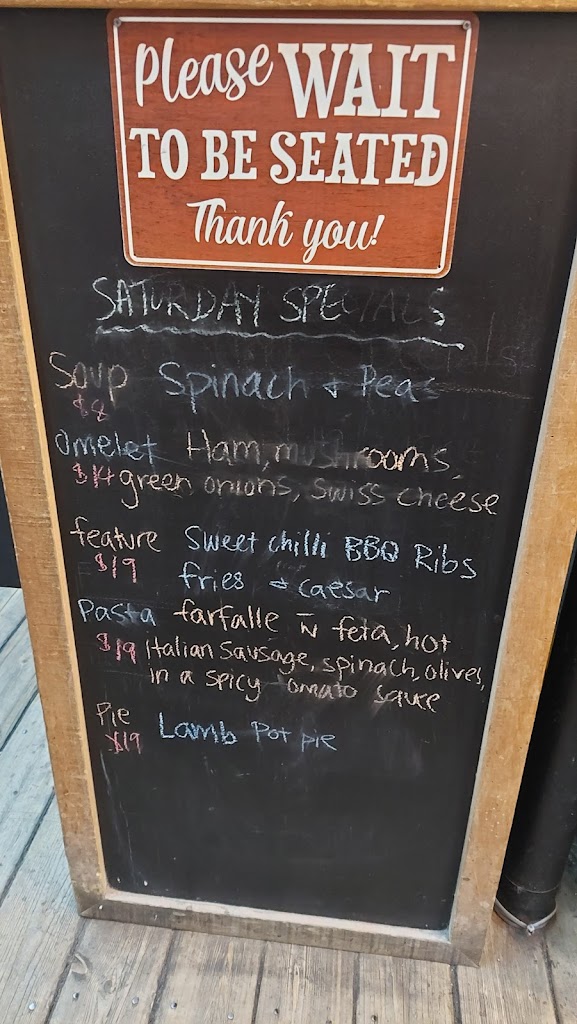 Please WAIT
TO BE SEATED
Thank you!
SATURDAY SPECIALS
Soup Spinach + Peas
$8
omelet Ham, mushrooms,
$14 green onions, swiss cheese
feature Sweet chilli BBQ Ribs
$19 fries + caesar
Pasta farfalle IN feta, hot
$19 Italian Sausage, spinach, olives,
in a spicy tomato sauce
Pie Lamb Pot pie
$19